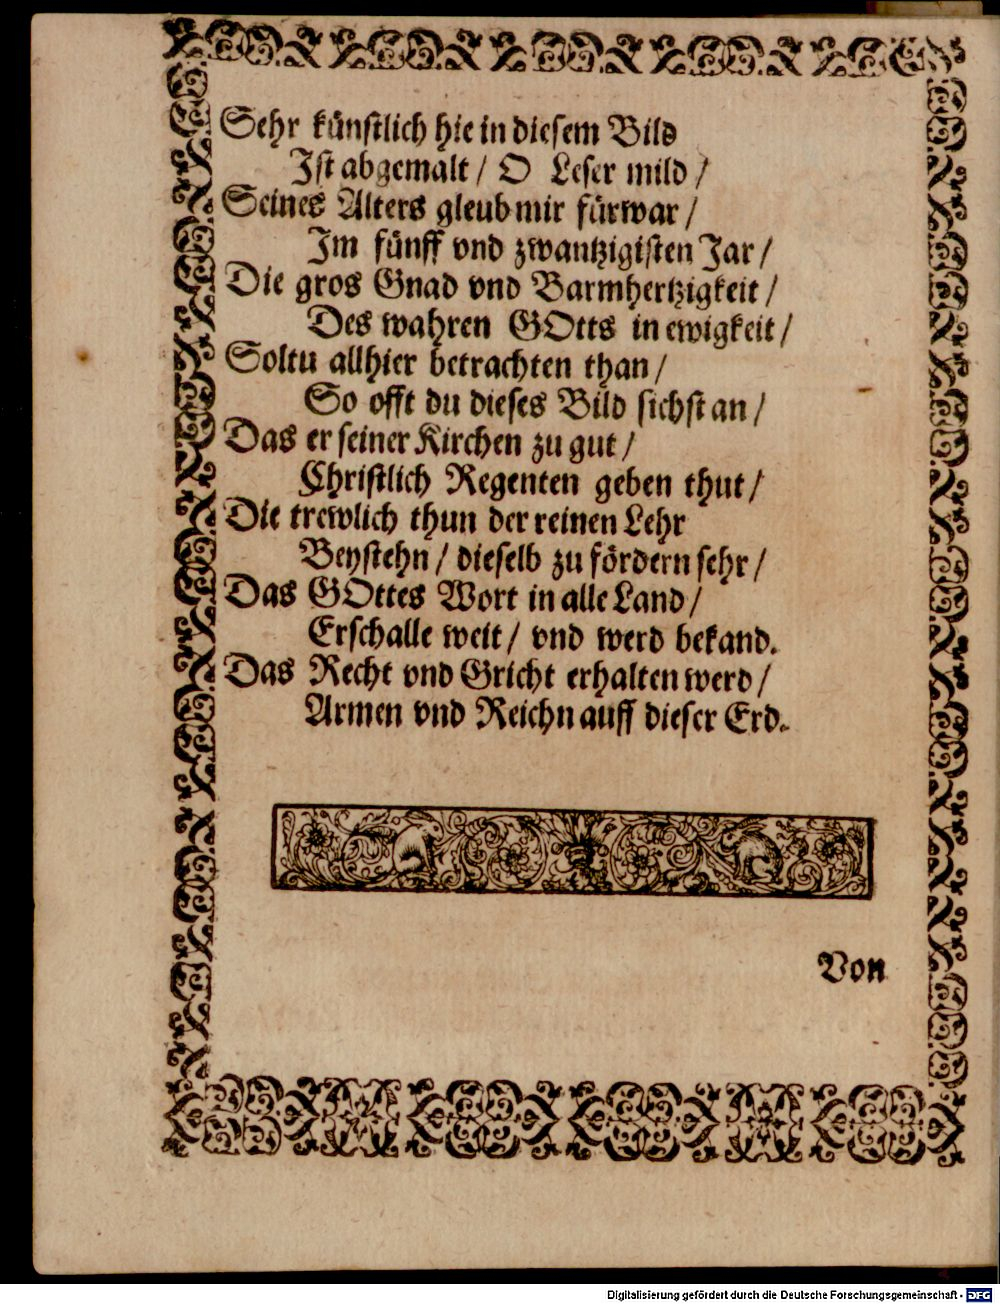 Sehr künstlich hie in diesem Bild
Ist abgemalt / O Leser mild /
Seines Alters gleub mir fürwar /
Im fünff vnd zwantzigisten Jar /
Die gros Gnad vnd Barmhertzigkeit /
Des wahren GOtts in ewigkeit /
Soltu allhier betrachten than /
So offt du dieses Bild sichst an /
Das er seiner Kirchen zu gut /
Christlich Regenten geben thut /
Die trewlich thun der reinen Lehr
Beystehn / dieselb zu fördern sehr /
Das GOttes Wort in alle Land /
Erschalle weit / vnd werd bekand.
Das Recht vnd Gricht erhalten werd /
Armen vnd Reichn auff dieser Erd.
Von
Digitalisierung gefördert durch die Deutsche Forschungsgemeinschaft - DFG